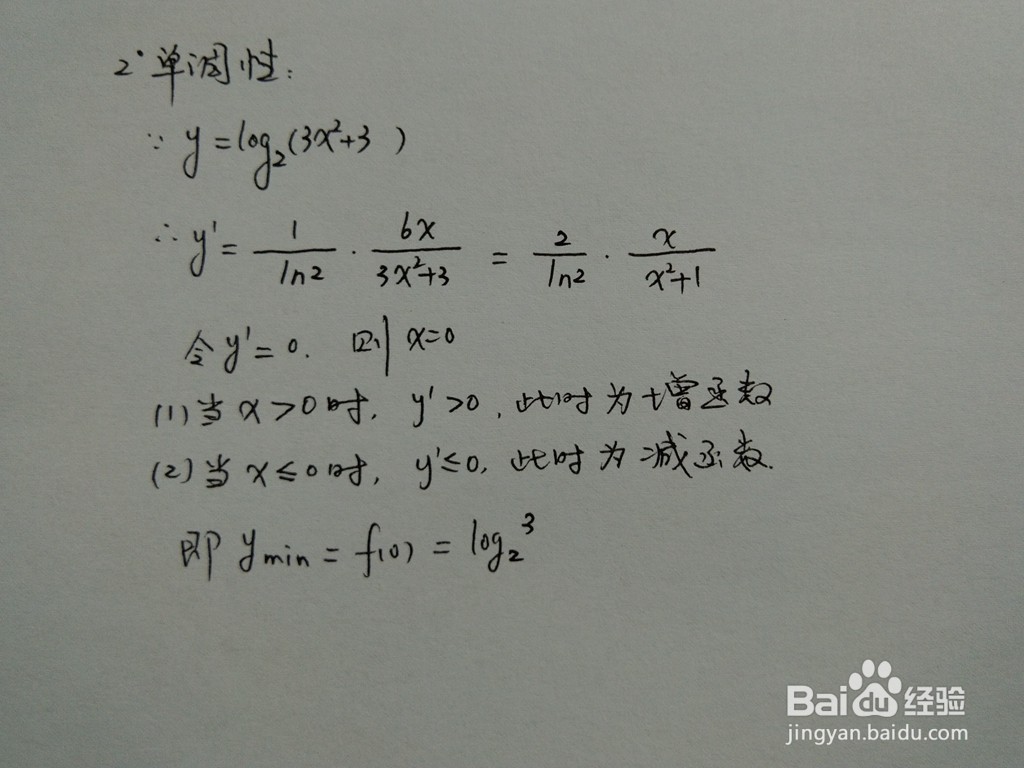 2° 单调性:
∵ y=log₂(3x²+3)
∴ y'= 1/ln2 · 6x/(3x²+3) = 2/ln2 · x/(x²+1)
令 y'=0. 则 x=0
(1)当 x>0时, y'>0, 此时为增函数
(2)当 x≤0时, y'≤0, 此时为减函数.
即 ymin = f(0) = log₂³
Baidu经验
jingyan.baidu.com